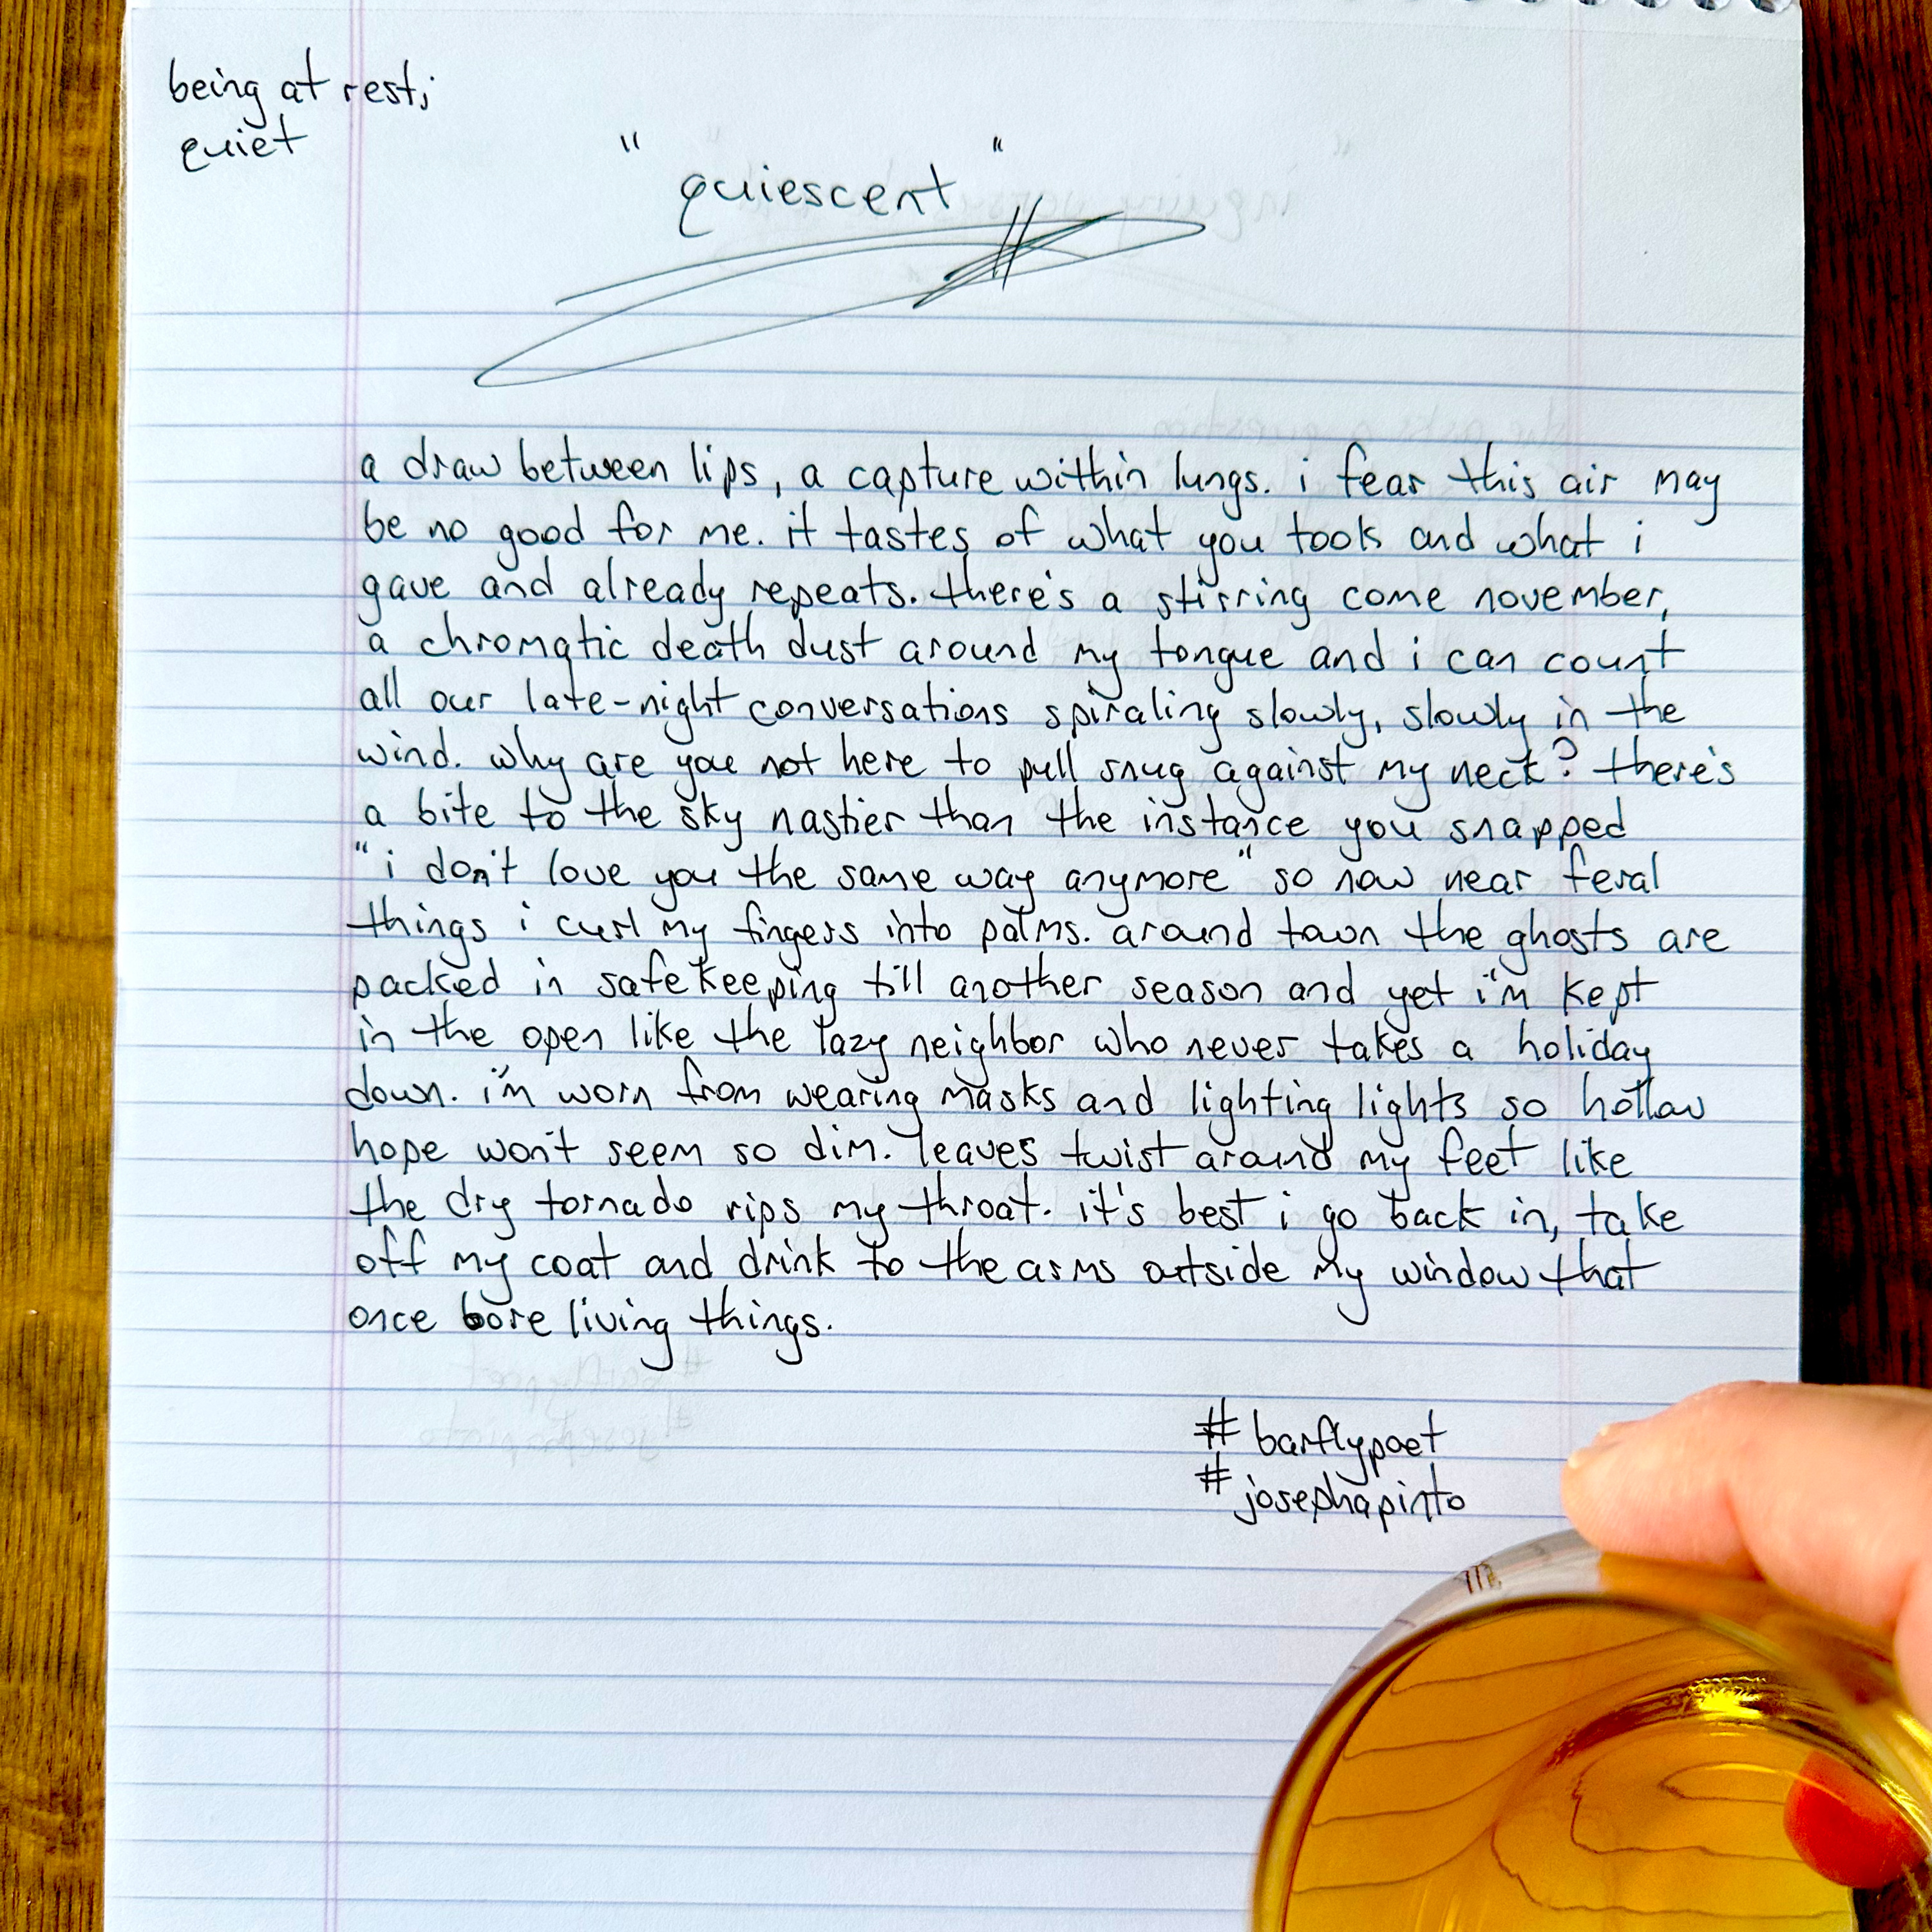 being at rest;
quiet
"quiescent"
a draw between lips, a capture within lungs. i fear this air may
be no good for me. it tastes of what you took and what i
gave and already repeats. there's a stirring come november,
a chromatic death dust around my tongue and i can count
all our late-night conversations spiraling slowly, slowly in the
wind. why are you not here to pull snug against my neck? there's
a bite to the sky nastier than the instance you snapped
"i don't love you the same way anymore" so now near feral
things i curl my fingers into palms. around town the ghosts are
packed in safekeeping till another season and yet i'm kept
in the open like the lazy neighbor who never takes a holiday
down. i'm worn from wearing masks and lighting lights so hollow
hope won't seem so dim. leaves twist around my feet like
the dry tornado rips my throat. it's best i go back in, take
off my coat and drink to the arms outside my window that
once bore living things.
#barflypoet
#josephapinto